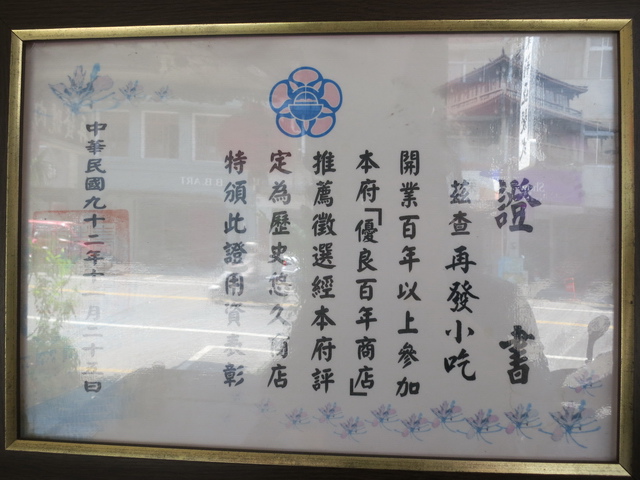 證書
茲查再發小吃
開業百年以上參加
本府「優良百年商店」
推薦徵選經本府評
定為歷史悠久商店
特頒此證用資表彰
中華民國九十二年十一月二十五日